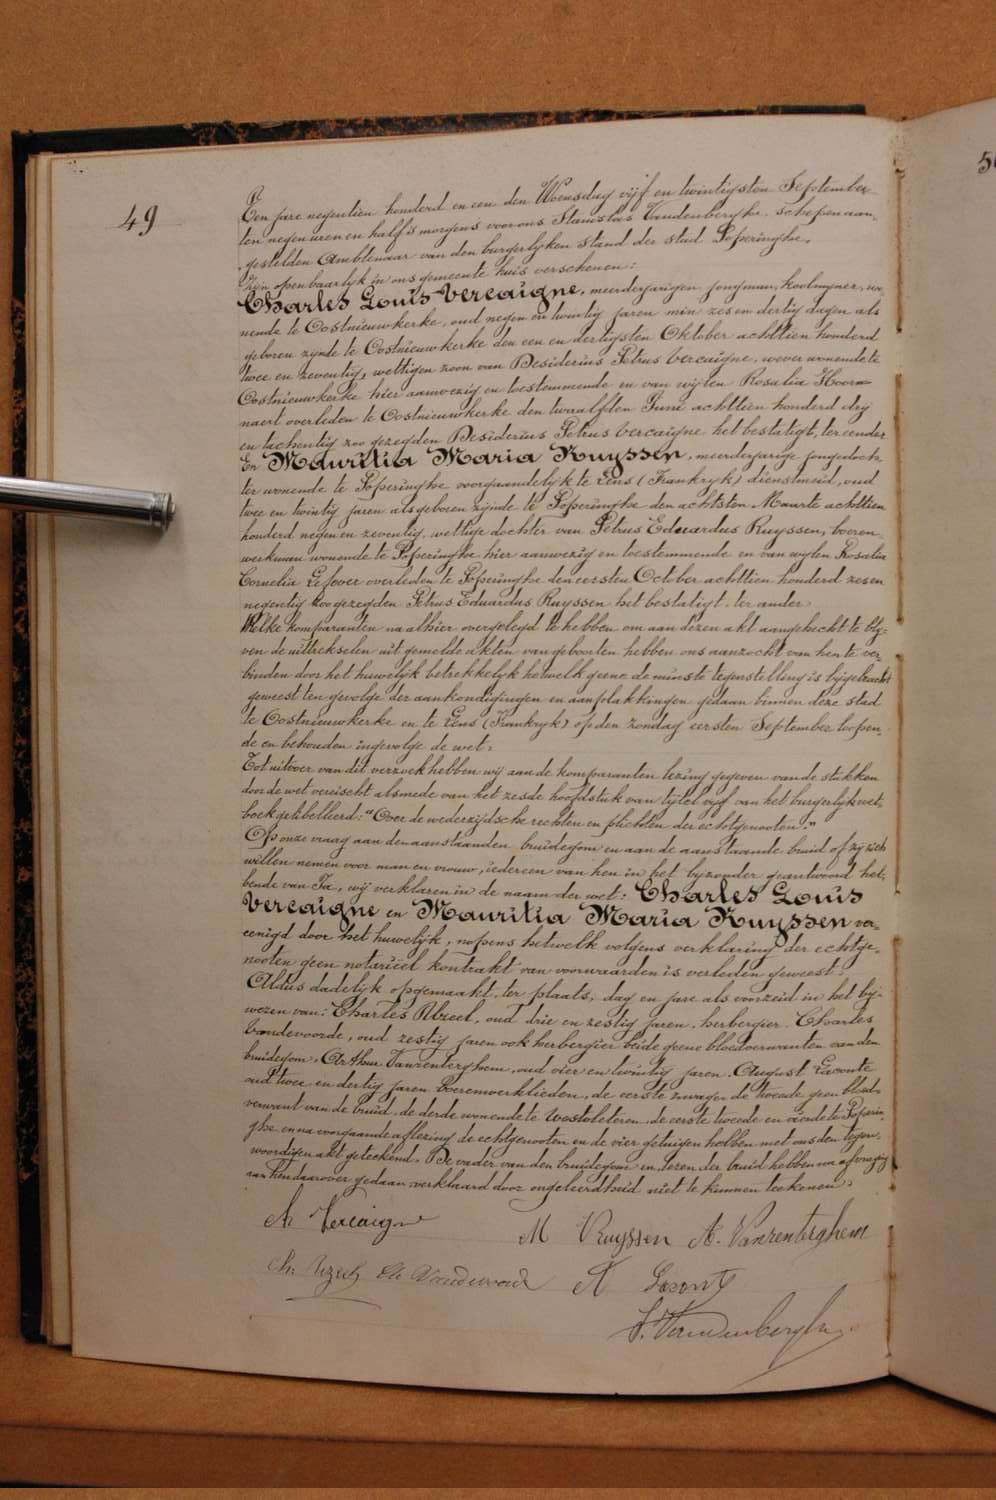 49
50
Ten jare negentien honderd en een den Woensdag vijf en twintigsten September
ten negen uren en half 's morgens voor ons Stanislas Vandenberghe, schepen aan-
gestelden Ambtenaar van den burgerlyken Stand der stad Poperinghe,
zijn openbaarlyk in ons gemeente huis verschenen:
Charles Louis Vercaigne, meerderjarigen jongman, koolmyner, wo-
nende te Oostnieuwkerke, oud negen en twintig jaren min zes en dertig dagen als
geboren zijnde te Oostnieuwkerke den een en dertigsten Oktober achttien honderd
twee en zeventig, wettigen zoon van Desiderius Petrus Vercaigne, wever wonende te
Oostnieuwkerke hier aanwezig en toestemmende en van wijlen Rosalia Hoor-
naert overleden te Oostnieuwkerke den twaalften Juni achttien honderd drij
en tachentig zoo gezegden Desiderius Petrus Vercaigne het bestatigt, ter eender
En Mauritia Maria Ruyssen, meerderjarige jongedoch-
ter wonende te Poperinghe voorgaandelyk te Lens (Frankryk) dienstmeid, oud
twee en twintig jaren als geboren zijnde te Poperinghe den achtsten Maarte achttien
honderd negen en zeventig, wettige dochter van Petrus Eduardus Ruyssen, boeren-
werkman wonende te Poperinghe hier aanwezig en toestemmende en van wylen Rosalia
Cornelia Lefever overleden te Poperinghe den eersten October achttien honderd zes en
negentig zoo gezegden Petrus Eduardus Ruyssen het bestatigt, ter ander
Welke komparanten na alhier overgelegd te hebben om aan dezen akt aangehecht te bly-
ven de uittrekselen uit gemelde akten van geboorten hebben ons aanzocht van hen te ver-
binden door het huwelyk betrekkelyk hetwelk geene de minste tegenstelling is bygebracht
geweest ten gevolge der aankondigingen en aanplakkingen gedaan binnen deze stad
te Oostnieuwkerke en te Lens (Frankryk) op den zondag eersten September loopen-
de en behouden ingevolge de wet,
Tot uitvoer van dit verzoek hebben wij aan de komparanten lezing gegeven van de stukken
door de wet vereischt alsmede van het zesde hoofdstuk van tijtel vyf van het burgerlyk wet-
boek gelibelleerd: "Over de wederzijdsche rechten en plichten der echtgenooten."
Op onze vraag aan den aanstaanden bruidegom en aan de aanstaande bruid of zy zich
willen nemen voor man en vrouw, iedereen van hen in het byzonder geantwoord heb-
bende van Ja, wij verklaren in de naam der wet: Charles Louis
Vercaigne en Mauritia Maria Ruyssen ver-
eenigd door het huwelijk, nopens hetwelk volgens verklaring der echtge-
nooten geen notariëel kontrakt van voorwaarden is verleden geweest.
Aldus dadelyk opgemaakt, ter plaats, dag en jare als voorzeid in het bij-
wezen van: Charles oud drie en zestig jaren, herbergier, Charles
Vandevoorde, oud zestig jaren ook herbergier beide geene bloedverwanten van den
bruidegom, Arthur Vanrenterghem, oud vier en twintig jaren, August Laconte
oud twee en dertig jaren boerenwerklieden, de eerste zwager de tweede geen bloed-
verwant van de bruid, de derde wonende te Westvleteren, de eerste tweede en vierde te Poperin-
ghe en na voorgaande aflezing de echtgenooten en de vier getuigen hebben met ons den tegen-
woordigen akt geteekend. De vader van den bruidegom en dezen der bruid hebben na afvraging
aan hen daarover gedaan, verklaard door ongeleerdheid niet te kunnen teekenen.
Ch Vercaigne
M Ruyssen A. Vanrenterghem
Ch. Ch Vandevoorde A Laconte
S. Vandenberghe